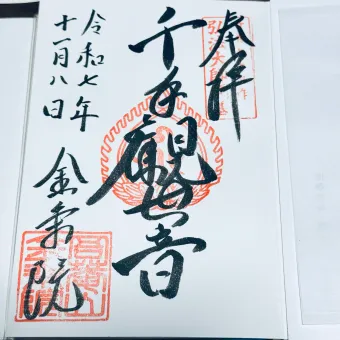 奉拝
弘法大
千手觀世音
令和七年
十一月八日
金乗院